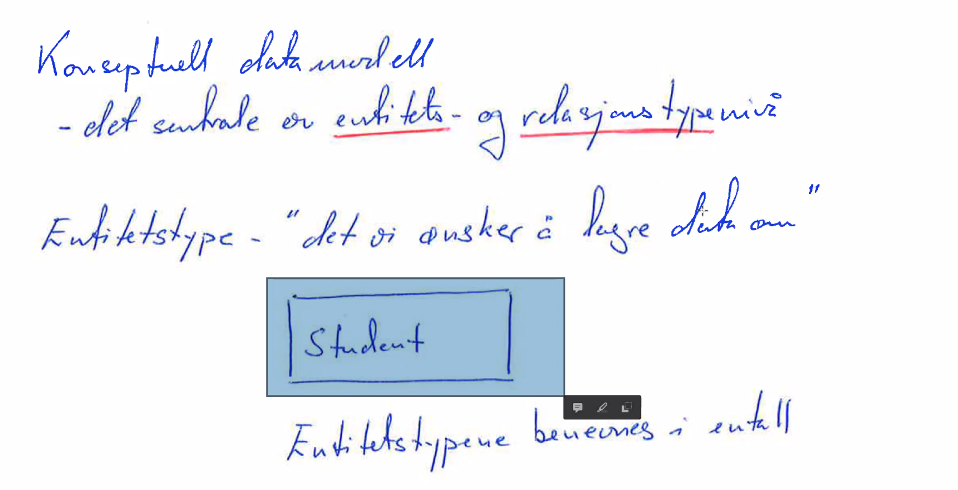 Konseptuell datamodell
- det sentrale er entitets- og relasjonstypenivå
Entitetstype - "det vi ønsker å lagre data om"
Student
Entitetstypene benevnes i entall